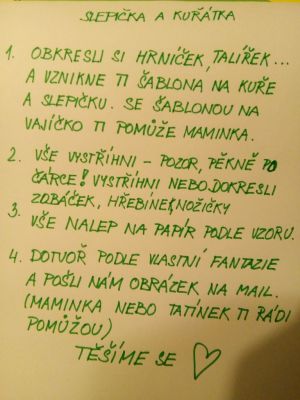 SLEPIČKA A KUŘÁTKA
1. OBKRESLI SI HRNÍČEK, TALÍŘEK...
A VZNIKNE TI ŠABLONA NA KUŘE
A SLEPIČKU. SE ŠABLONOU NA
VAJÍČKO TI POMŮŽE MAMINKA.
2. VŠE VYSTŘIHNI - POZOR, PĚKNĚ PO
ČÁRCE! VYSTŘIHNI NEBO DOKRESLI
ZOBÁČEK, HŘEBÍNEK, NOŽIČKY
3. VŠE NALEP NA PAPÍR PODLE VZORU.
4. DOTVOŘ PODLE VLASTNÍ FANTAZIE
A POŠLI NÁM OBRÁZEK NA MAIL.
(MAMINKA NEBO TATÍNEK TI RÁDI
POMŮŽOU)
TĚŠÍME SE ♡